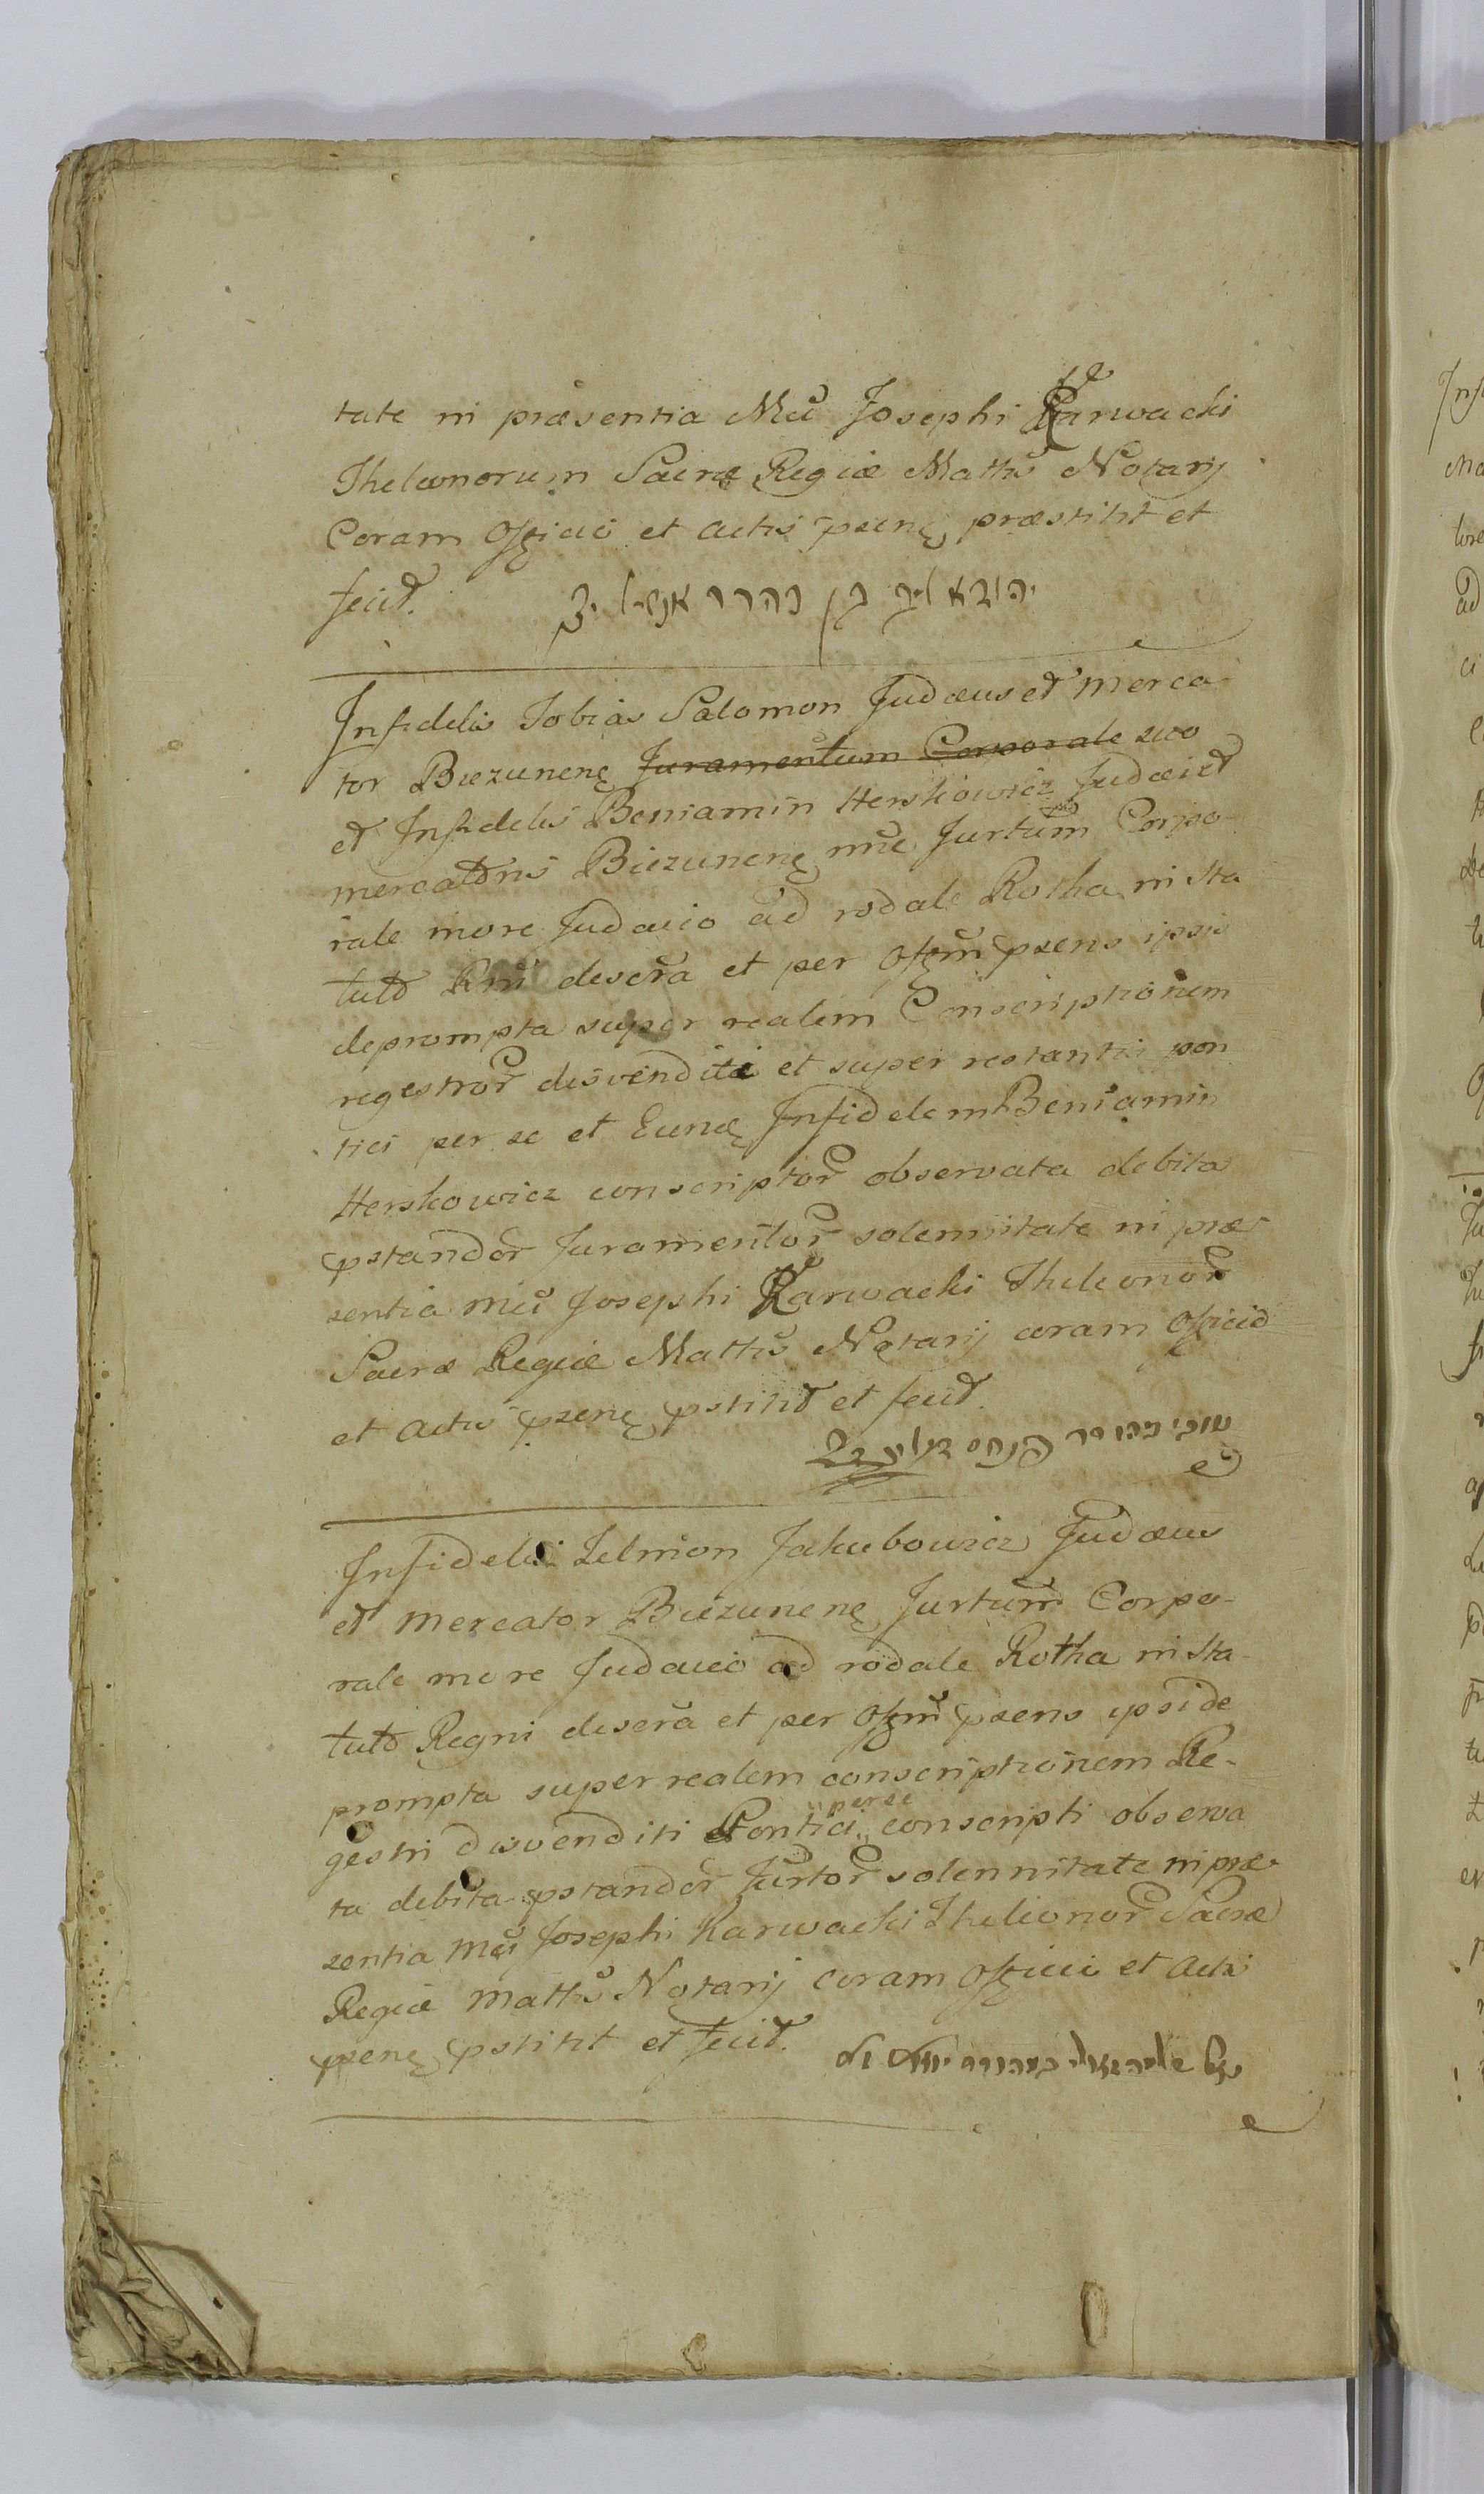 tate in præsentia Mci Josephi Karwacki
Theleonorum Sacræ Regiæ Mattis Notarij
Coram Officio et actis psenę præstitit et
fecit. יהודא ליב בן כהרר אנשיל
Infidelis Tobias Salomon Judæus et merca-
tor Biezunenę Juramentum Corporale suo
et Infidelis Beniamin Herskowicz Judæi et
mercatoris Biezunenę nne Jurtum Corpo-
rale more Judaico ad rodale Rotha in sta
tuto Rni descra et per Offm psens ipsis
deprompta super realem Conscriptionem
regestror disvenditi et super restantis pon
tici per se et Eundę Infidelem Beniamin
Herskowicz conscriptor observata debita
pstandor Juramentor solennitate in præ-
sentia Mci Josephi Karwacki Theleonor
Sacræ Regiæ Mattis Notarij coram Officio
et actis psenę pstitit et fecit.
Infidelis Zelmon Jakubowicz Judæus
et Mercator Biezunenę Jurtum Corpo-
rale more Judaico ad rodale Rotha in sta-
tuto Regni descra et per Offm psens ipsi de
prompta super realem conscriptionem Re-
gestri disvenditi Pontici per se conscripti observa
ta debita pstandor Jurtor solennitate in præ-
sentia Mci Josephi Karwacki Theleonor Sacræ
Regiæ Mattis Notarij coram Officio et actis
psenę pstitit et fecit.